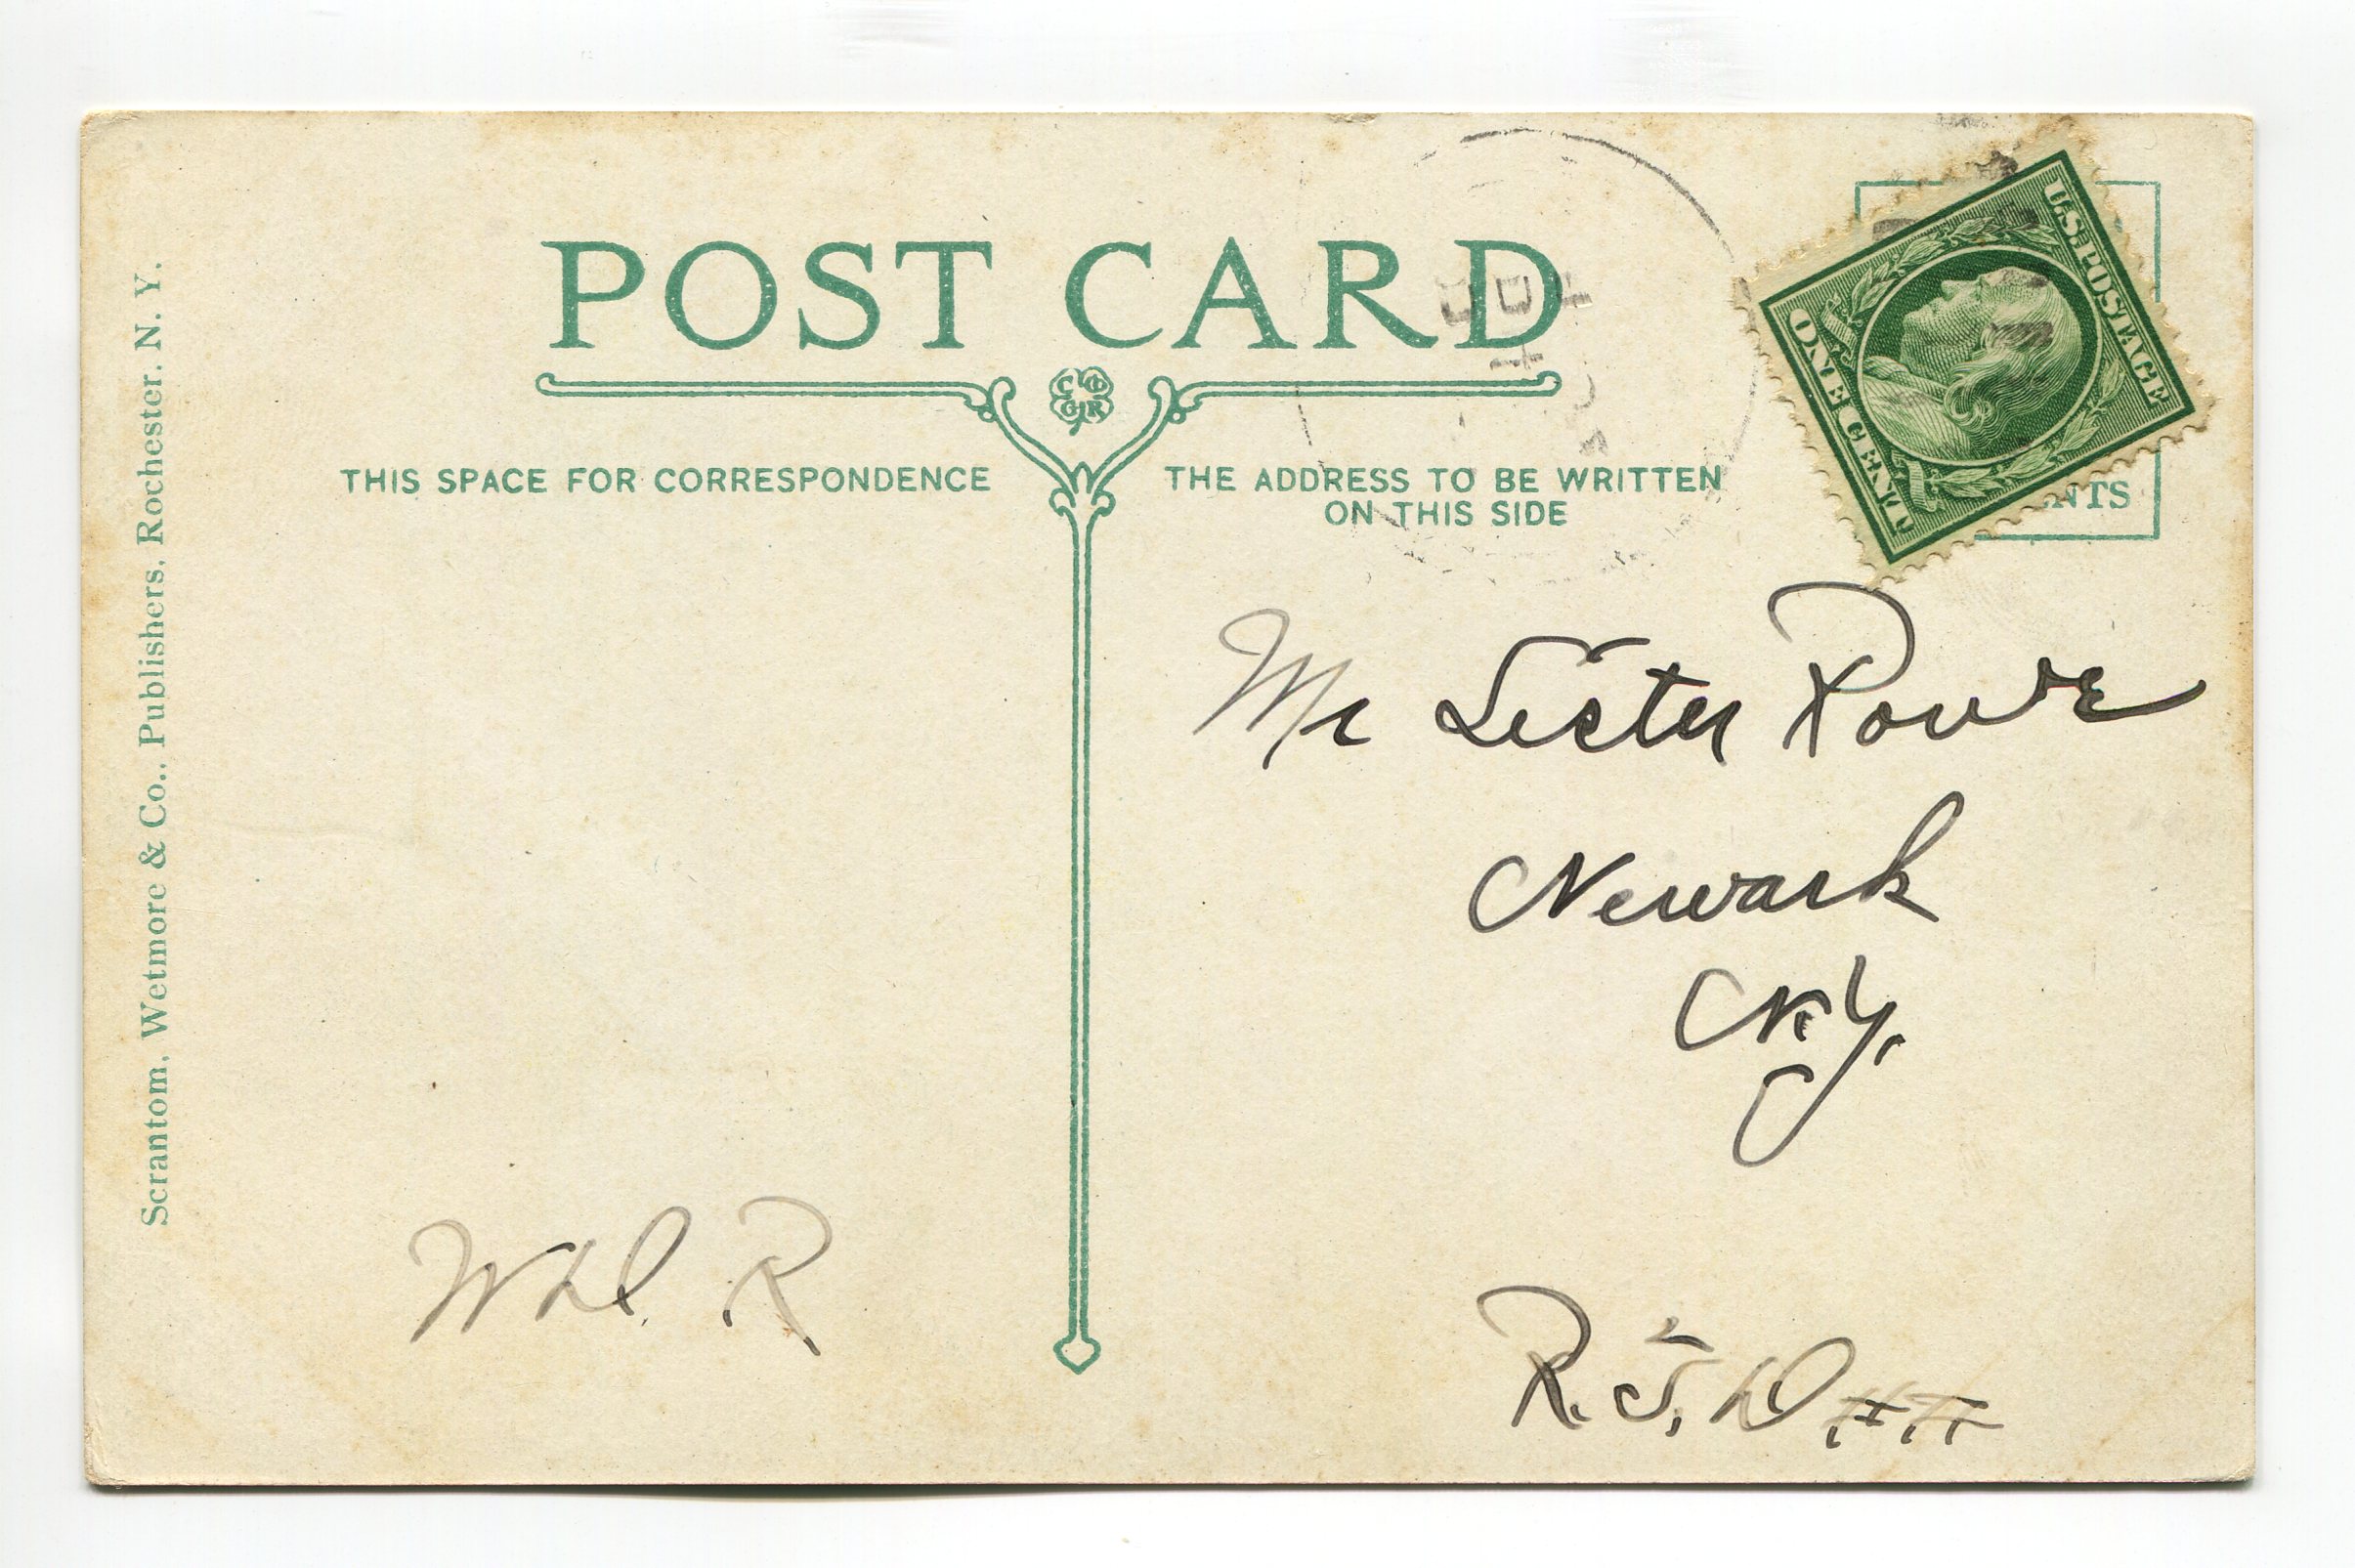 POST CARD
C O
G R
THIS SPACE FOR CORRESPONDENCE
THE ADDRESS TO BE WRITTEN
ON THIS SIDE
U.S. POSTAGE
ONE CENT
NTS
Mr Lester Rowe
Newark
N.Y.
R.F.D.
R
Scrantom, Wetmore & Co., Publishers, Rochester, N. Y.